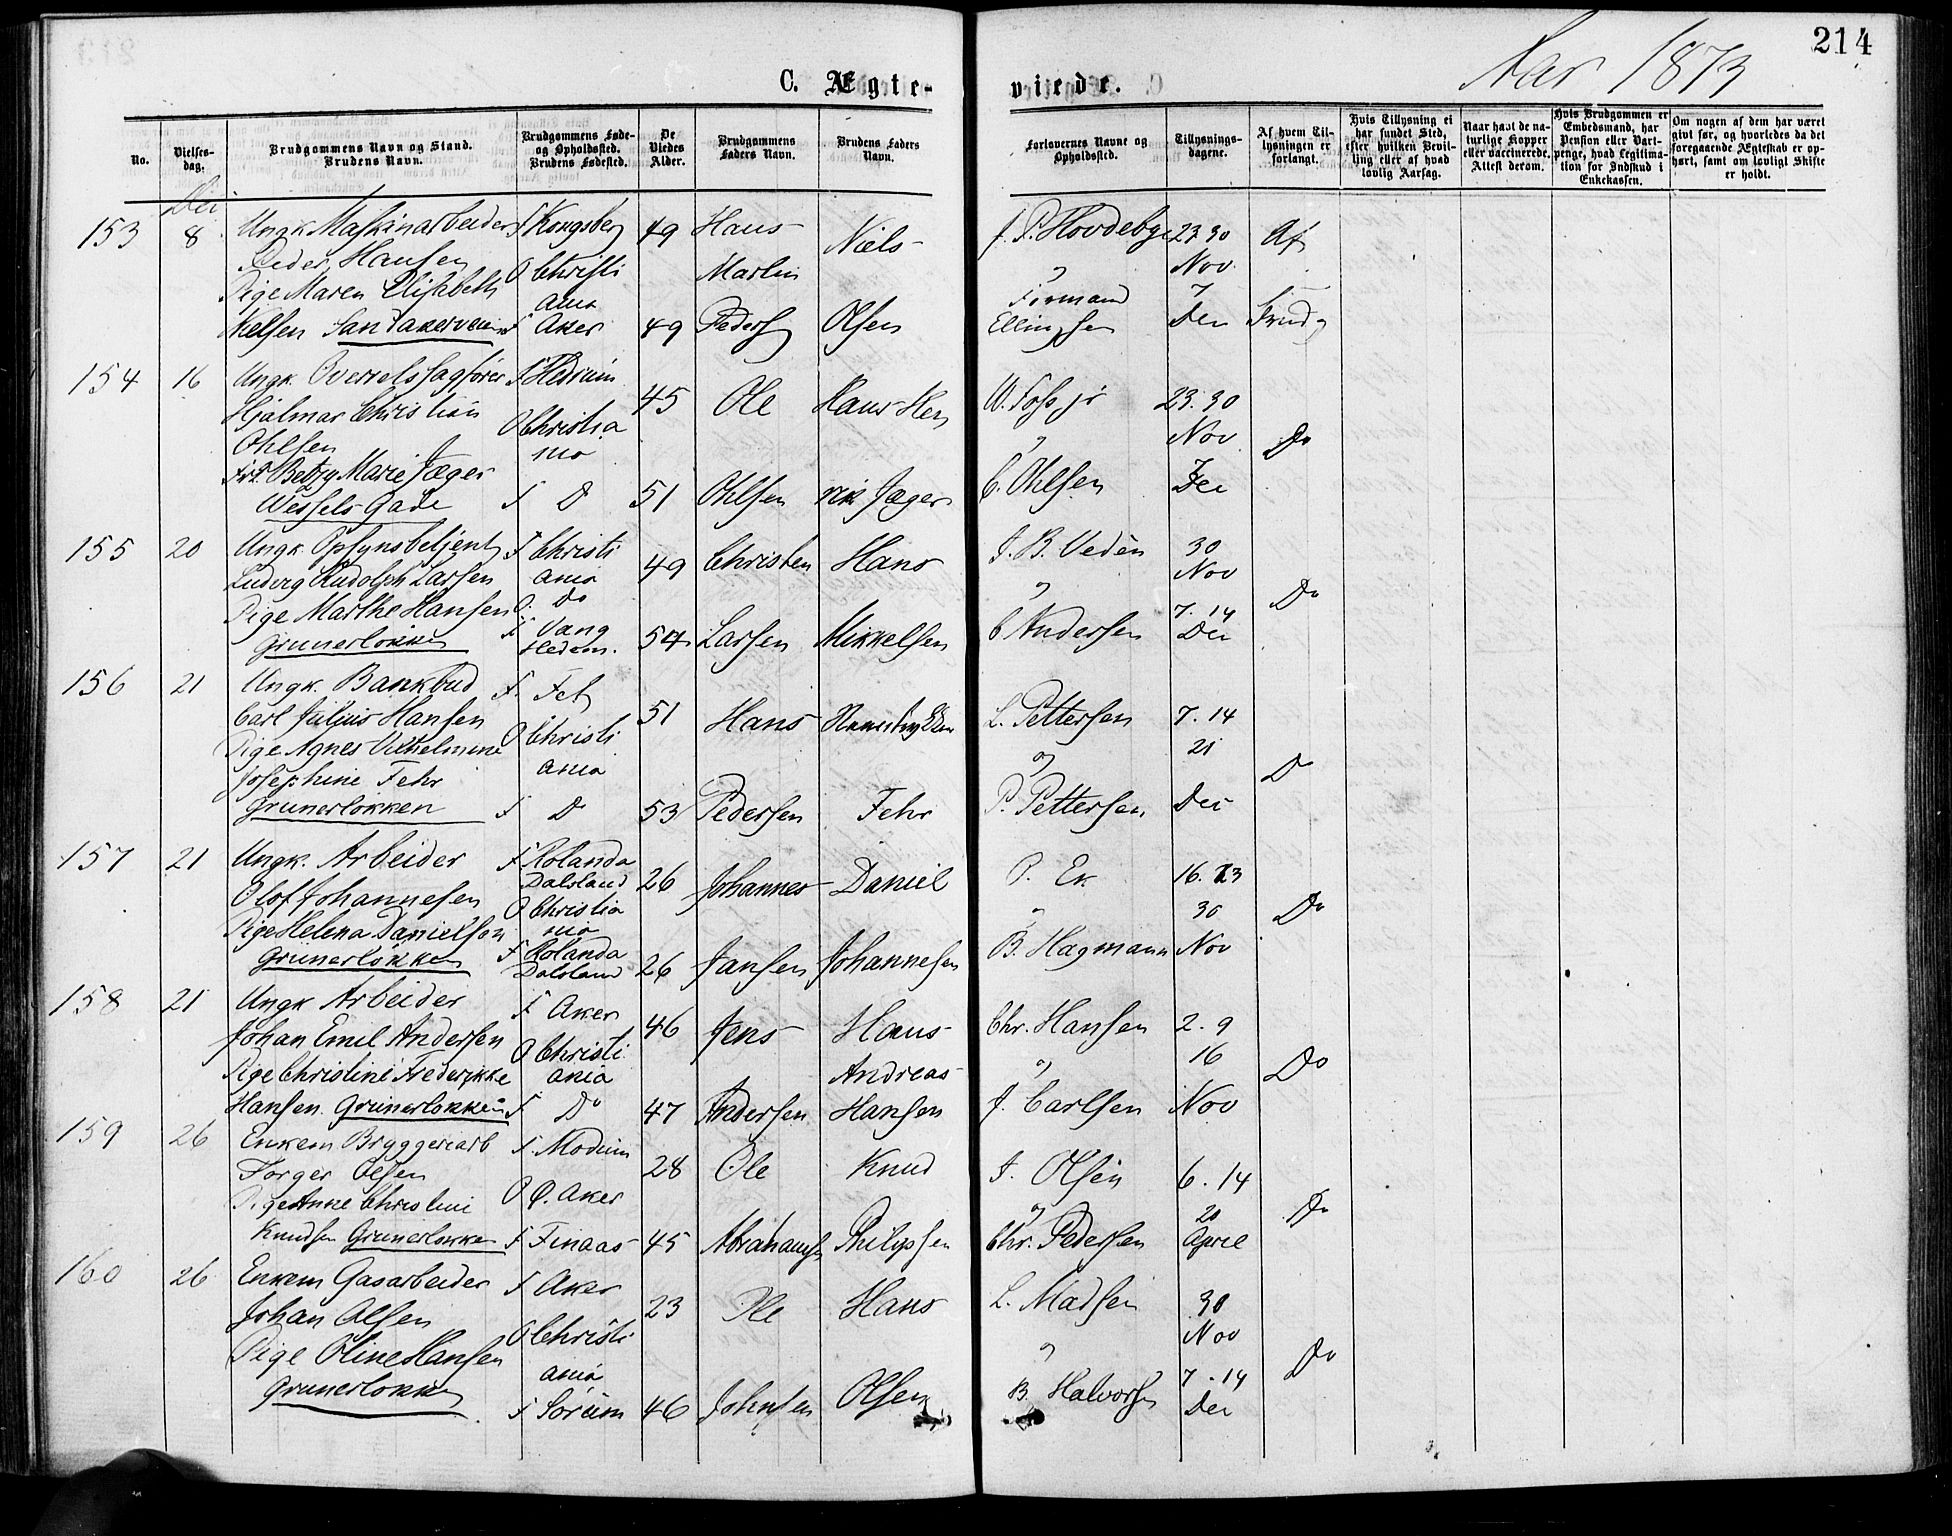 214
Aar 1873
C. Ægte-
viede.
No.
Vielses-
dag.
Brudgommens Navn og Stand.
Brudens Navn.
Brudgommens Føde-
og Opholdssted.
Brudens Fødested.
De
Viedes
Alder.
Brudgommens
Faders Navn.
Brudens Faders
Navn.
Forlovernes Navne og
Opholdssted.
Tillysnings-
dagene.
Af hvem Til-
lysningen er
forlangt.
Hvis Tillysning ei
har fundet Sted,
efter hvilken Bevil-
ling eller af hvad
lovlig Aarsag.
Naar havt de na-
turlige Kopper
eller vaccinerede.
Attest derom.
Hvis Brudgommen er
Embedsmand, har
Pension eller Vart-
penge, hvad Legitima-
tion for Indskud i
Enkekassen.
Om nogen af dem har været
givt før, og hvorledes da det
foregaaende Ægteskab er op-
hørt, samt om lovligt Skifte
er holdt.
153 8 Ungk. Maskinarbeider F Kongsberg 49 Hans Niels J. P. Hovdebye 23 30 Af
Peder Hansen O Christi Martin Nov
Pige Maren Elisabeth ania Formand 7
Nielsen Sandakerveien F Aker 49 Peders Olsen Ellingsen Dec Brudg
154 16 Ungk. Overretssagfører F Hedrum 45 Ole Hans Hen W. Foss jr 23. 30
Hjalmar Christian O Christia Nov Do
Ohlsen nia 7
Frk. Betzy Marie Jæger
Wessels Gade F Do 51 Ohlsen rik Jæger C. Ohlsen Dec
155 20 Ungk. Opsynsbetjent F Christi 49 Christen Hans J. B. Vedèn 30
Ludvig Rudolph Larsen ania Nov
Pige Marthe Hansen O. Do 7. 14 Do
Grünerløkken F Vang 54 Larsen Mikkelsen C Andersen Dec
Hedem.
156 21 Ungk. Bankbud F. Fet 51 Hans L. Pettersen 7. 14
Carl Julius Hansen O Christi 21
Pige Agnes Vilhelmine ania Do
Josephine Fehr
Grünerløkken F Do 53 Pedersen Fehr P. Pettersen Dec
157 21 Ungk. Arbeider F Rolanda 26 Johannes Daniel P. Ek 16. 23
Dalsland
Olof Johannesen O Christia 30 Do
Pige Helena Danielson nia
Grünerløkken F Rolanda 26 Jansen Johannesen B. Hagmann Nov
Dalsland
158 21 Ungk Arbeider F Aker 46 Jens Hans Chr. Hansen 2. 9
Johan Emil Andersen O Christi 16
Pige Christine Frederikke ania Andreas Do
Hansen. Grünerløkken F Do 47 Andersen Hansen J. Carlsen Nov
159 26 Enkem Bryggeriarb F. Modum 28 Ole Knud J. Olsen 6. 14
Torger Olsen
Pige Anne Christine O Ø. Aker 20 Do
Knudsen Grünerløkken F Finaas 45 Abrahamsen Philipsen Chr. Pedersen April
160 26 Enkem Gasarbeider F Aker 23 Ole Hans L. Madsen 30
Johan Olsen O Christi Nov
Pige Oline Hansen ania 7. 14 Do
Grünerløkken F Sørum 46 Johnsen Olsen B. Halvorsen Dec